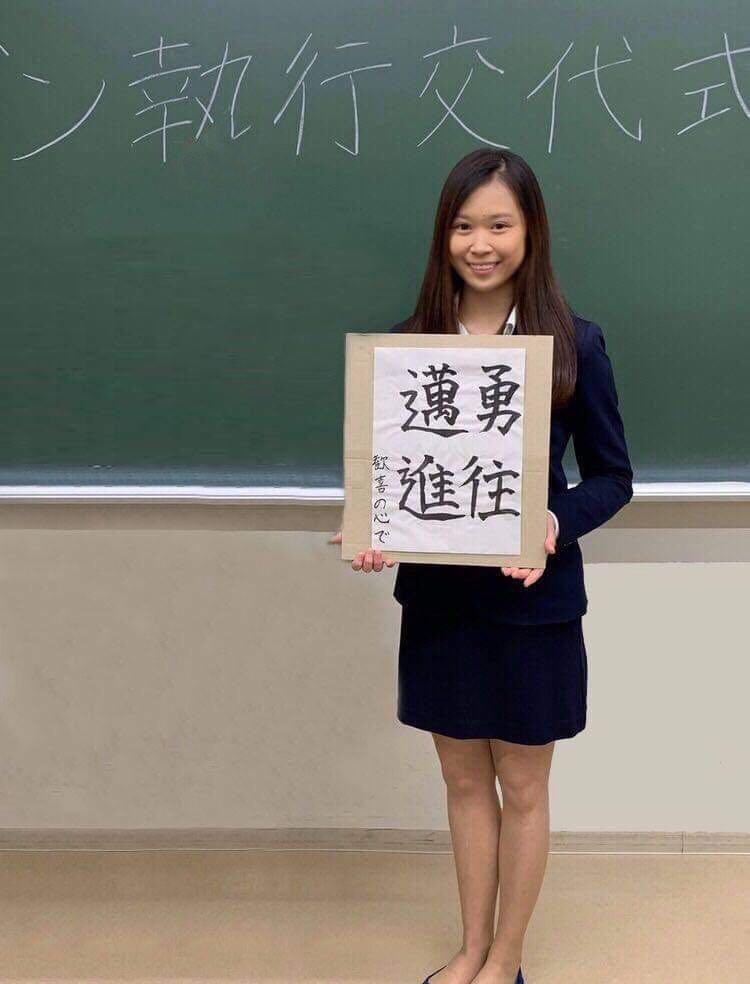 ン執行交代式
勇往
邁進
歓喜の心で